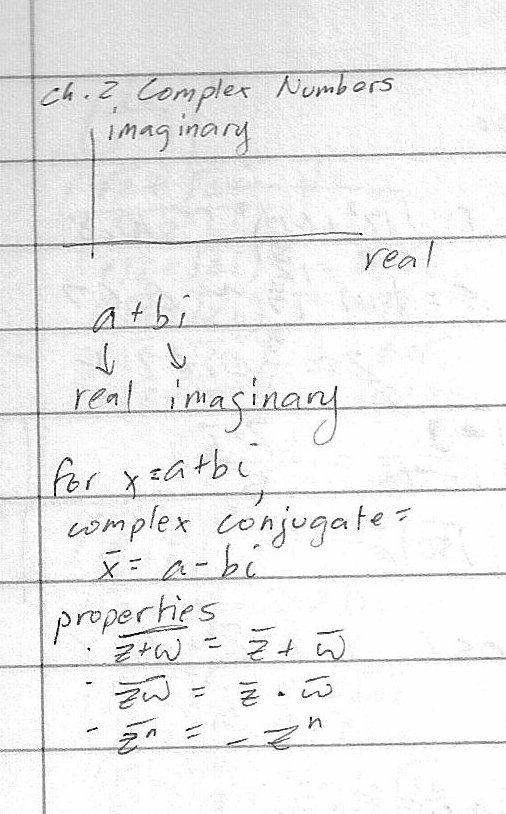 Ch. 2 Complex Numbers
imaginary
real
a + bi
↓ ↓
real imaginary
for x = a+bi,
complex conjugate =
x̄ = a - bi
properties
· \overline{z+w} = z̄ + w̄
- \overline{zw} = z̄ · w̄
- \overline{z^n} = - z^n